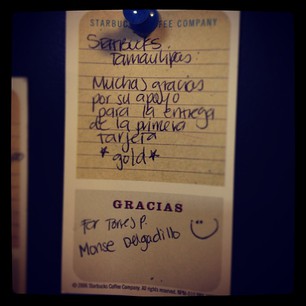 STARBUCKS COFFEE COMPANY
Starbucks
Tamaulipas:
Muchas gracias
por su apoyo
para la entrega
de la primera
Tarjeta
*gold*
GRACIAS
Fer Torres P.
Monse Delgadillo
Starbucks Coffee Company. All rights reserved.